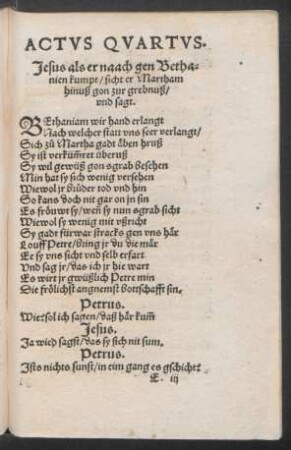 ACTVS QVARTVS.
Jesus als er naach gen Betha-
nien kumpt/ sicht er Martham
hinuß gon zur grebnuß/
vnd sagt.
BEthaniam wir hand erlangt
Nach welcher statt vns seer verlangt/
Sich zů Martha gadt åben hruß
Sy ist verküm̄ret überuß
Sy wil gewüß gon s grab besehen
Min hat sy sich wenig versehen
Wiewol jr brůder tod vnd hin
So kans doch nit gar on jn sin
Es fröuwt sy/ weñ sy nun s grab sicht
Wiewol sy wenig mit vßricht
Sy gadt fürwar stracks gen vns här
Louff Petre/ bring jr du die mår
Ee sy vns sicht vnd selb erfart
Vnd sag jr/ das ich jr hie wart
Es wirt jr gwüßlich Petre min
Die frölichst angnemst bottschafft sin.
Petrus.
Wie? sol ich sagen/ daß här kum̄
Jesus.
Ja wie d sagst/ das sy sich nit sum.
Petrus.
Ists nichts sunst/ in eim gang es gschicht
E. iij